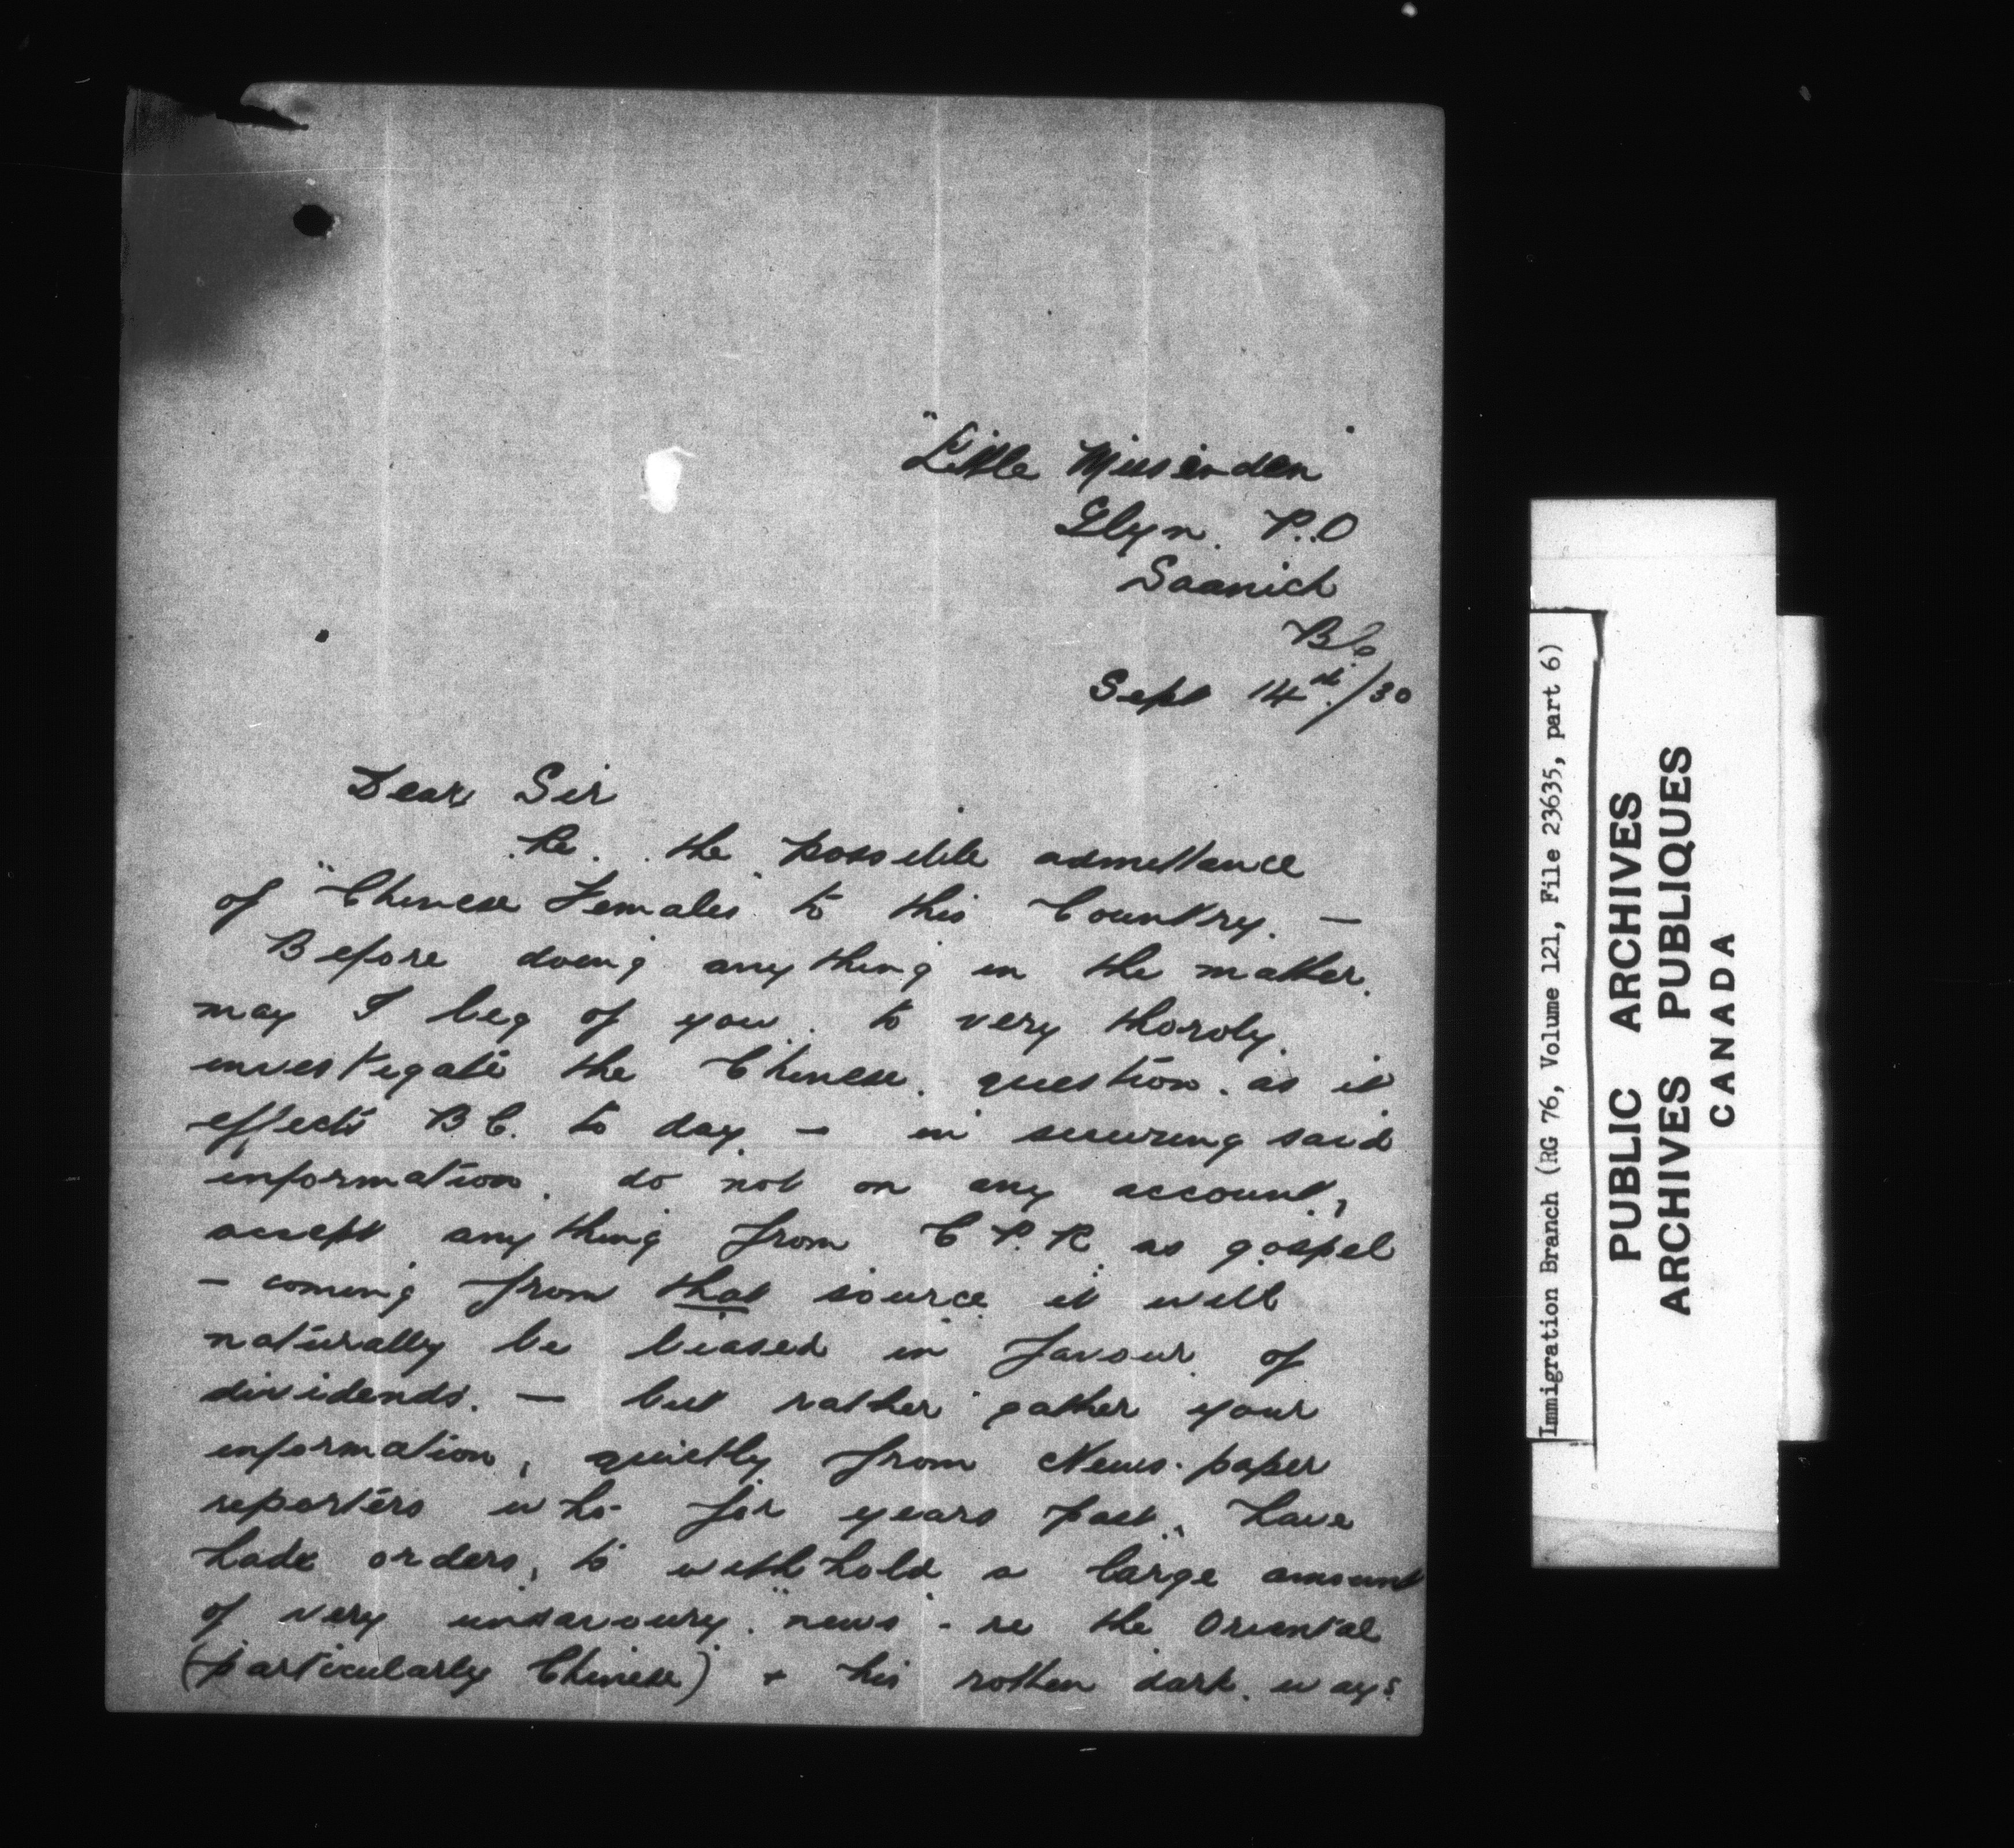 "Little Missenden"
Glyn. P.O
Saanich
BC
Sept 14th/30
Dear Sir
Re. the possible admittance
of "Chinese Females" to this Country. —
Before doing anything in the matter.
may I beg of you. to very thoroly.
investigate the Chinese. question. as it
effects B.C. to day — in securing said
information. do not on any account,
accept anything from C.P.R. as gospel
— coming from that source it will
naturally be biased in favour of
dividends. — but rather gather your
information, quietly from News-paper
reporters who for years past. have
had orders, to withhold a large amount
of very unsavoury "news" - re the Oriental
(particularly Chinese) + his rotten dark. ways
Immigration Branch (RG 76, Volume 121, File 23635, part 6)
PUBLIC ARCHIVES
ARCHIVES PUBLIQUES
CANADA